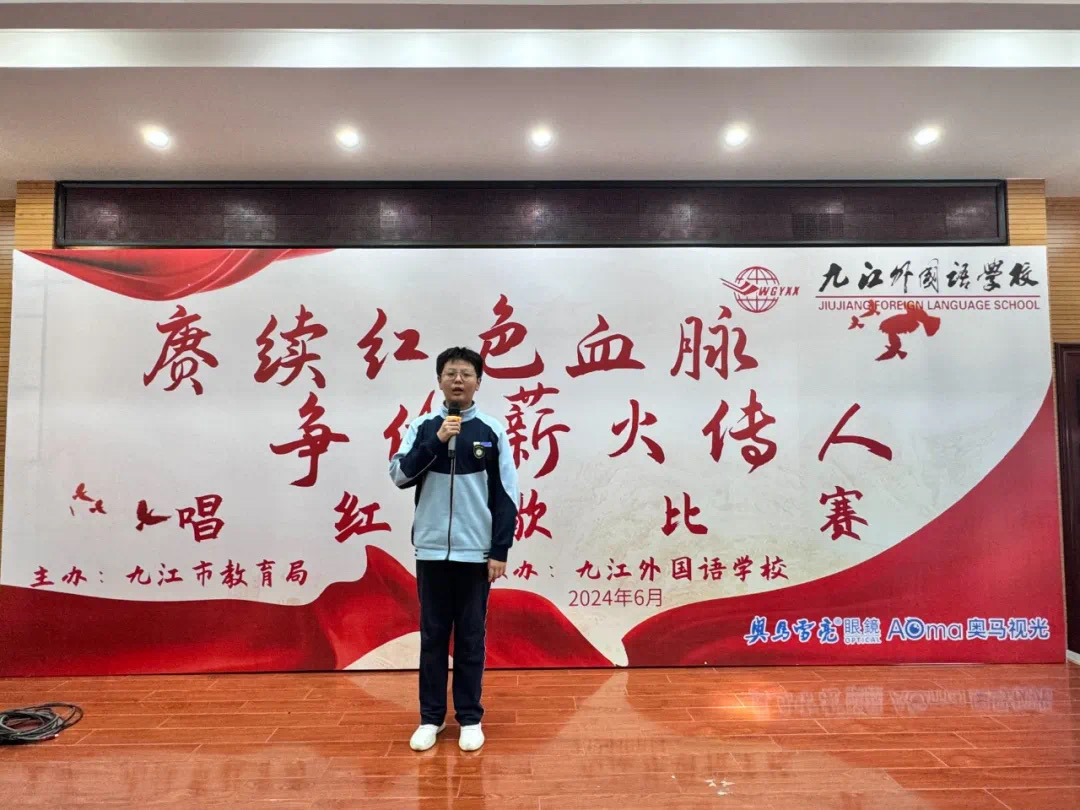 WGYXX
九江外国语学校
JIUJIANG FOREIGN LANGUAGE SCHOOL
赓续红色血脉
争 薪火传人
唱红歌比赛
主办：九江市教育局 办：九江外国语学校
2024年6月
奥马雪亮®眼镜 OPTICAL AOma奥马视光